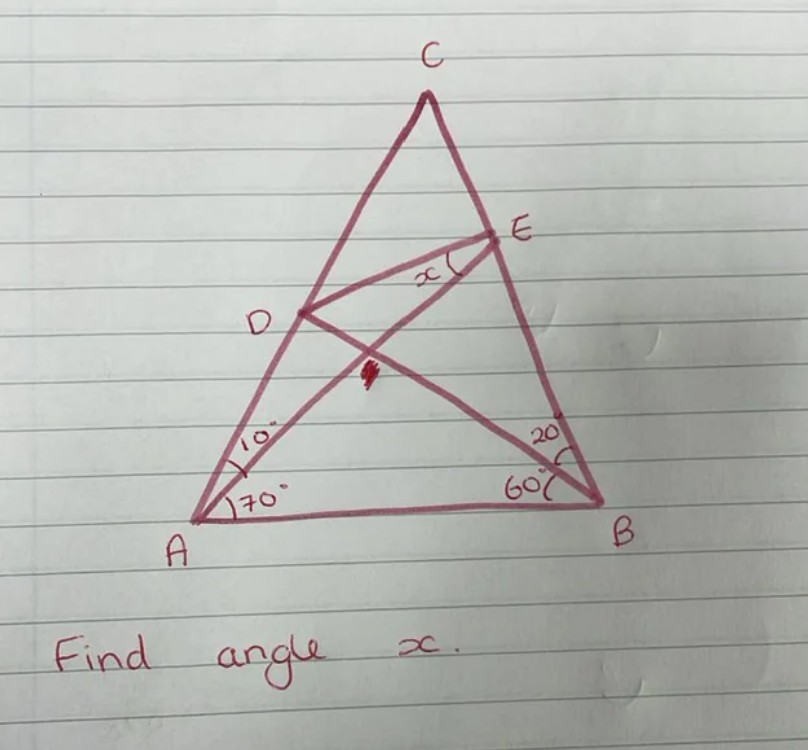 C
E
x
D
10°
20
70°
60°
A
B
Find angle x.